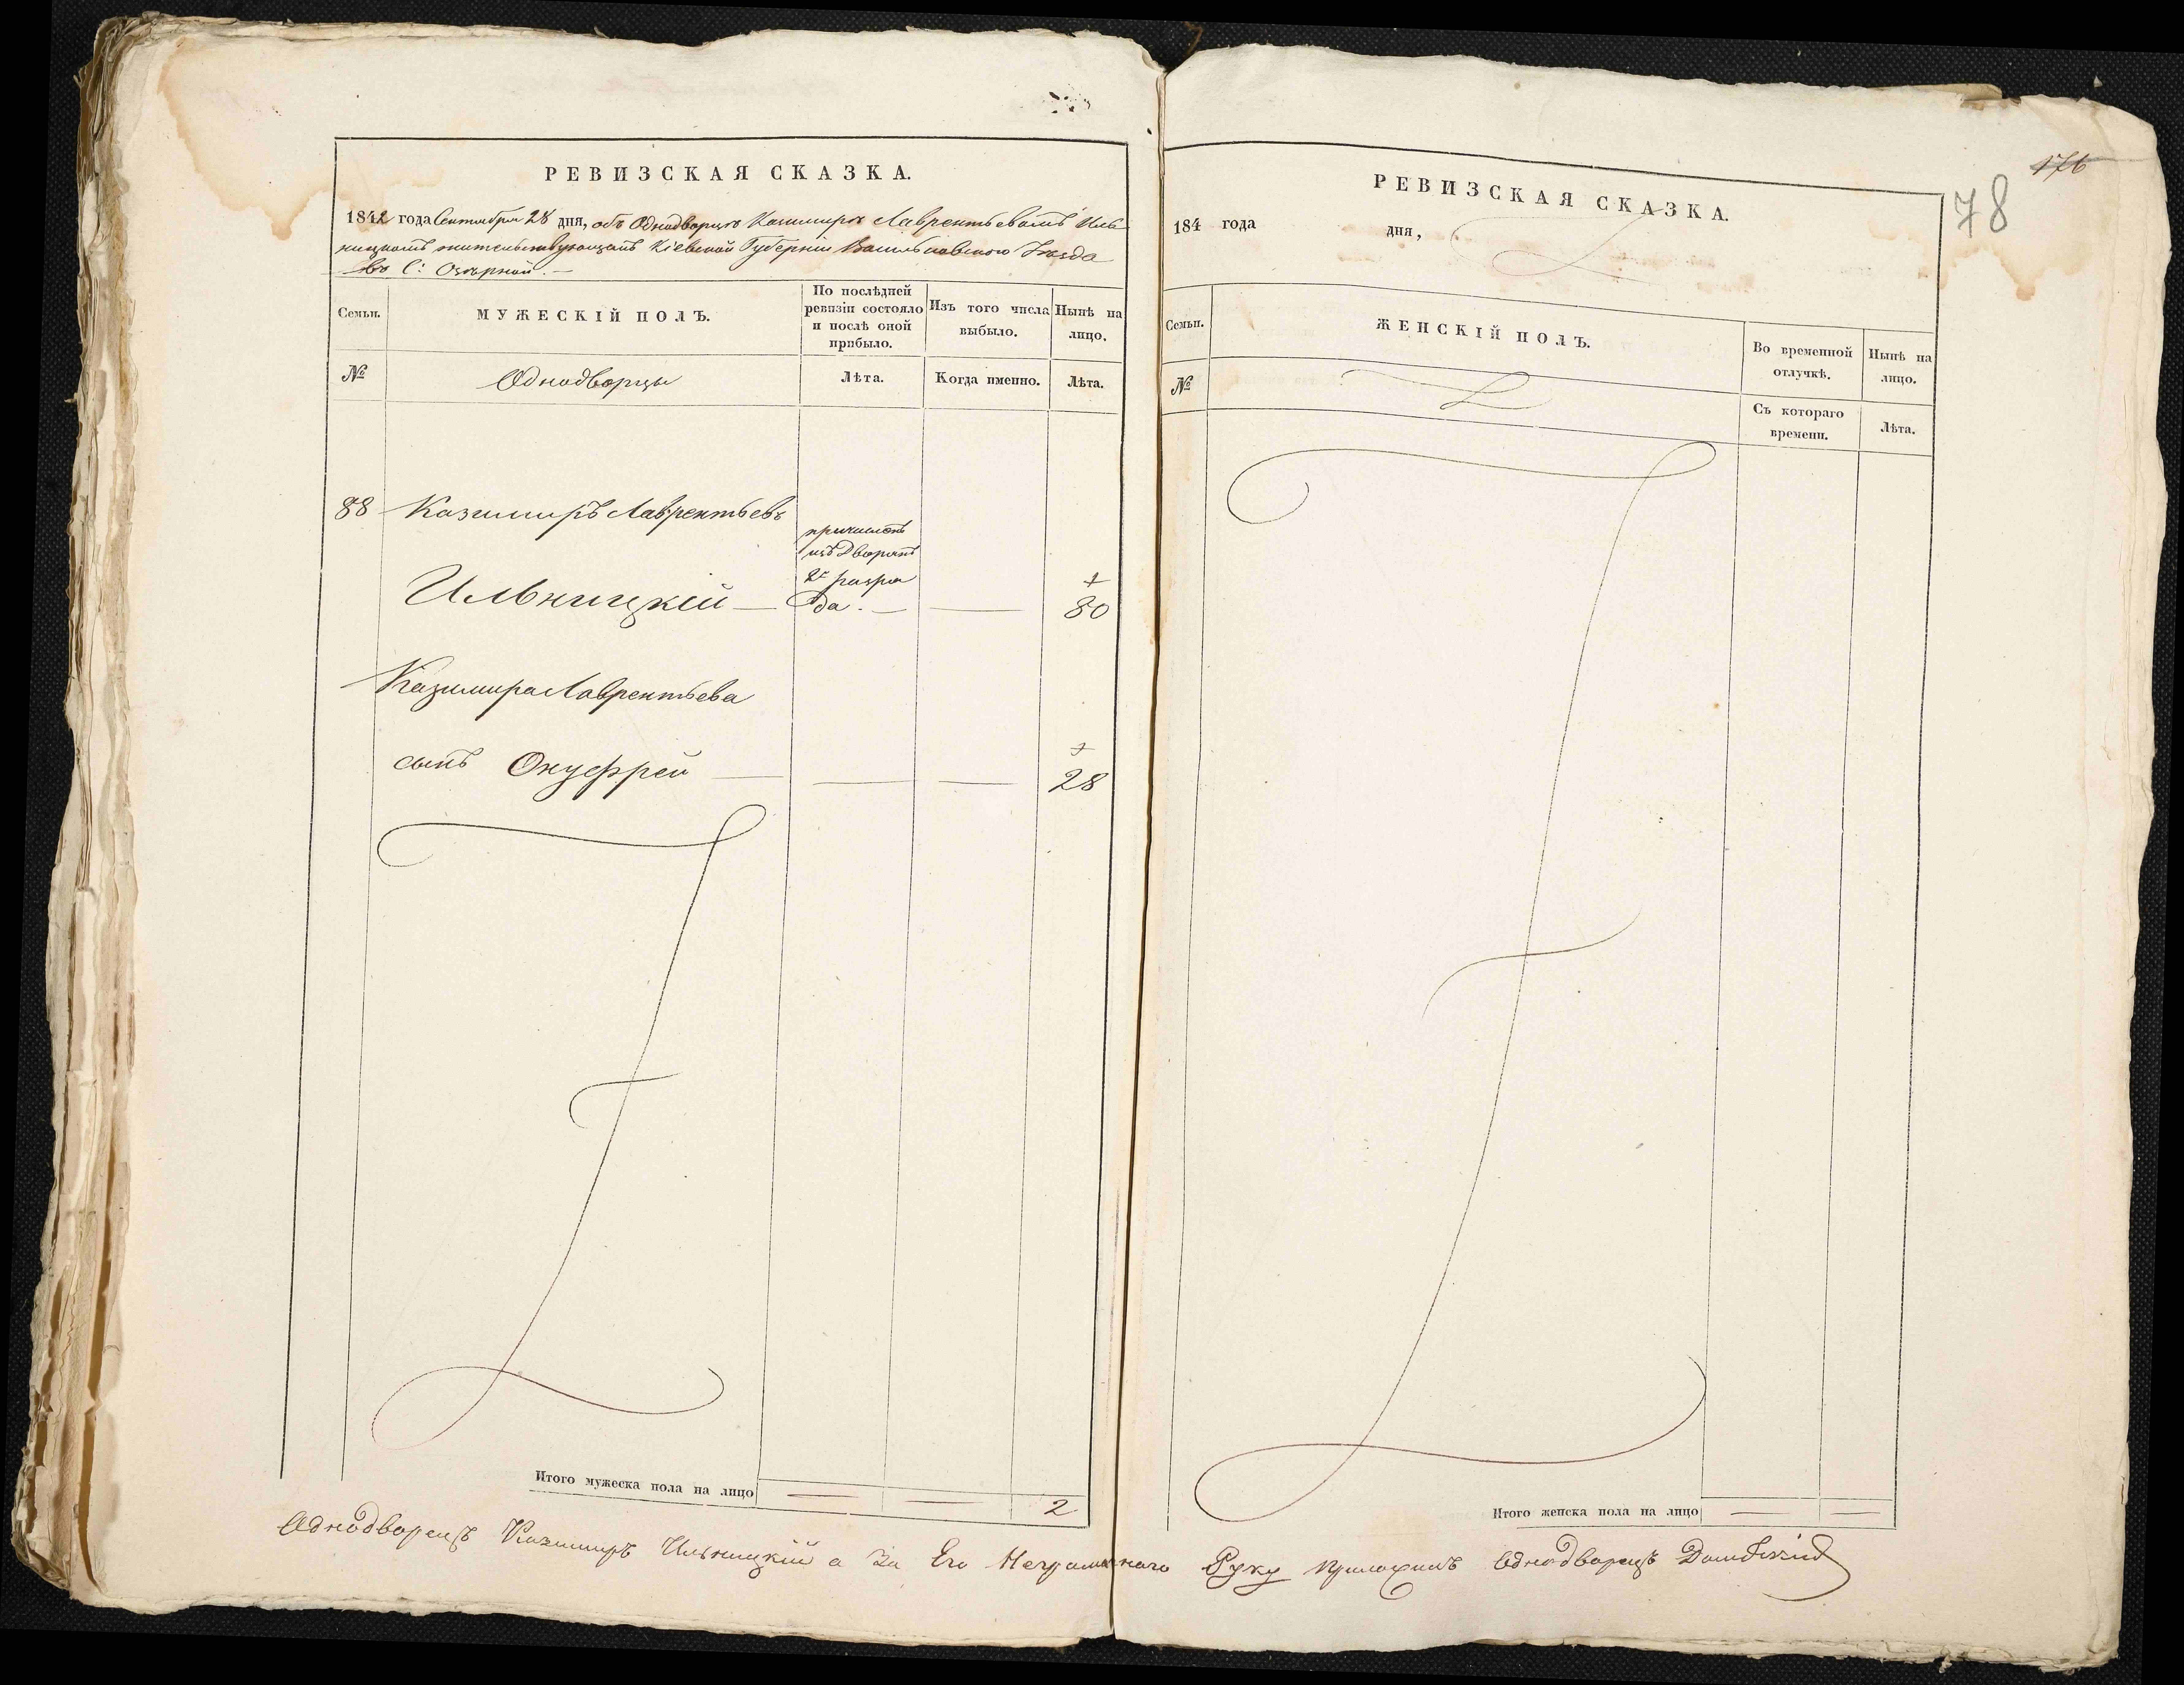 РЕВИЗСКАЯ СКАЗКА.
1842 года Сентября 28 дня, объ Однодворцѣ Казимирѣ Лаврентьевомъ Иль-
ницкомъ жительствующемъ Кіевской Губерніи Васильковскаго Уѣзда
въ С: Озѣрной. —
Семьи.
МУЖЕСКІЙ ПОЛЪ.
По послѣдней
ревизіи состояло
и послѣ оной
прибыло.
Изъ того числа
выбыло.
Нынѣ на
лицо.
№
Однодворцы
Лѣта.
Когда именно.
Лѣта.
88
Казимиръ Лаврентьевъ
причисленъ
изъ Дворянъ
2го разря
Ильницкій —
да. —
80
Казимира Лаврентьева
сынъ Онуфрей
28
Итого мужеска пола на лицо
2
Однодворецъ Казимиръ Ильницкій а За Его Неграмотнаго
176
78
РЕВИЗСКАЯ СКАЗКА.
184 года дня,
Семьи.
ЖЕНСКІЙ ПОЛЪ.
Во временной
отлучкѣ.
Нынѣ на
лицо.
№
Съ котораго
времени.
Лѣта.
Итого женска пола на лицо
Руку приложилъ Однодворецъ